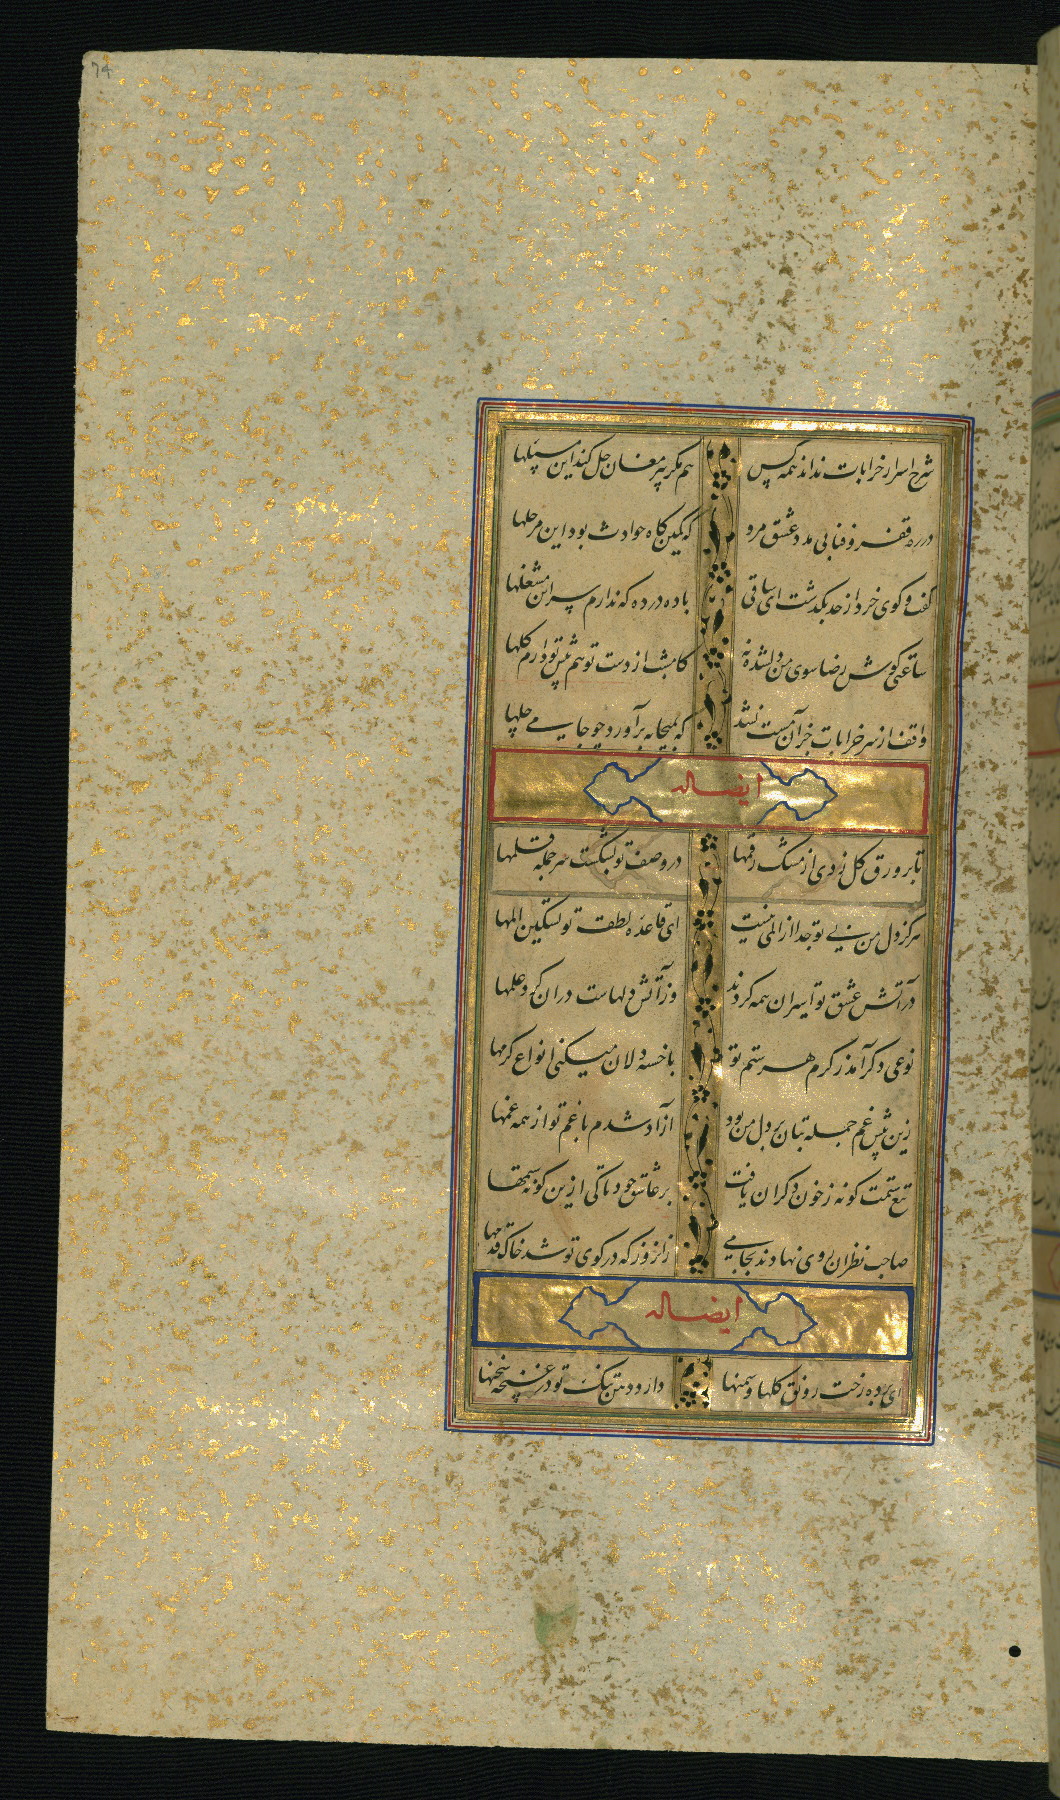 74
شرح اسرار خرابات نداند همه کس هم مگر پیر مغان حل کند این مسئلها
در ره فقر و فنا بی مدد عشق مرو که کمین کاه حوادث بود این مرحلها
کفت و کوی خرد از حد بکذشت ای ساقی باده در ده که ندارم سر این مشغلها
ساعتی کوش رضا سوی من دلشده نه کامشب از دست تو هم پیش تو دارم کلها
واقف از سر خرابات جز آن مست نشد که بمیخانه برآورد چو جامی چلها
ایضا له
تا بر ورق کل زدی از مشک رقمها در وصف تو بشکست سر جمله قلمها
هرکز دل من بی تو جدا از المی نیست ای قاعده لطف تو تسکین المها
در آتش عشق تو اسیران همه کردند وز آتش دلهاست در آن کرد علمها
نوعی دکر آمد ز کرم هر ستم تو با خسته دلان میکنی انواع کرمها
زین پیش غم جمله بتان بر دل من بود آزاد شدم با غم تو از همه غمها
تیغ ستمت کونه ز خون دکران یافت بر عاشق خود تا کی ازین کونه ستمها
صاحب نظران روی نهادند بجامی زان روز که در کوی تو شد خاک قدمها
ایضا له
ای برده رخت رونق کلها و سمنها دارد دهن تنک تو در غنچه سخنها